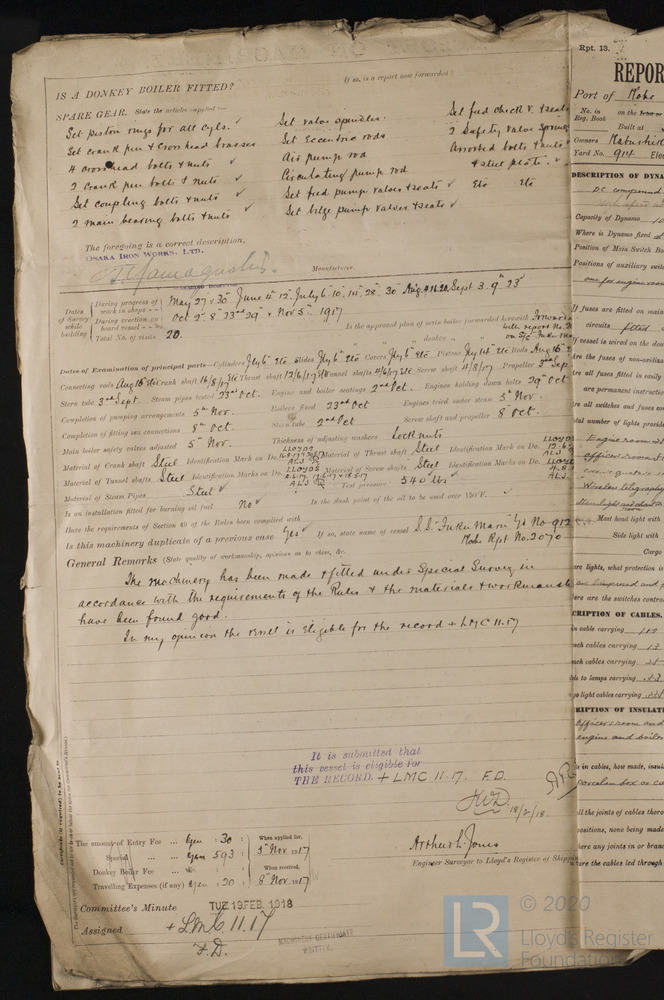 IS A DONKEY BOILER FITTED?
If so, is a report now forwarded?
SPARE GEAR. State the articles supplied:—
Set piston rings for all cyls.
Set crank pin & Crosshead brasses
4 crosshead bolts & nuts
2 crank pin bolts & nuts
Set coupling bolts & nuts
2 main bearing bolts & nuts
Set valve spindles.
Set Eccentric rods
Air pump rod
Circulating pump rod
Set feed pump valves & seats
Set bilge pump valves & seats
Set feed check v. & seats
2 Safety valve springs
Assorted bolts & nuts
& steel plate.
Etc Etc
The foregoing is a correct description,
OSAKA IRON WORKS, LTD.
Manufacturer.
Dates of Survey while building
During progress of work in shops - -
May 27 & 30 June 4 12 July 6 10 14 28 30 Aug 4 16 20 Sept 3 9 23
During erection on board vessel - - -
Oct 2 8 23 29 & Nov 5 1917
Total No. of visits
20.
Is the approved plan of main boiler forwarded herewith
Dates of Examination of principal parts—Cylinders July 6 etc Slides July 6 etc Covers July 6 etc Pistons July 14 etc Rods Aug 16
Connecting rods Aug 16 etc Crank shaft 16/8/17 etc Thrust shaft Tunnel shafts Screw shaft Propeller 3rd Sep
Stern tube 3rd Sept Steam pipes tested 23rd Oct. Engine and boiler seatings 2nd Oct. Engines holding down bolts 29th Oct
Completion of pumping arrangements 5th Nov. Boilers fixed 23rd Oct Engines tried under steam 5th Nov.
Completion of fitting sea connections 8th Oct Stern tube 2nd Oct Screw shaft and propeller 8th Oct.
Main boiler safety valves adjusted 5th Nov. Thickness of adjusting washers Lock nuts
Material of Crank shaft Steel Identification Mark on Do. LLOYDS Material of Thrust shaft Steel Identification Mark on Do. LLOYDS
Material of Tunnel shafts Steel Identification Marks on Do. LLOYDS Material of Screw shafts Steel Identification Marks on Do. LLOYDS
Material of Steam Pipes Steel Test pressure 540 lbs
Is an installation fitted for burning oil fuel No Is the flash point of the oil to be used over 150°F.
Have the requirements of Section 49 of the Rules been complied with
Is this machinery duplicate of a previous case Yes If so, state name of vessel S.S. Fuku Maru Yd No 912
Kobe Rpt No. 2070
General Remarks (State quality of workmanship, opinions as to class, &c.
The machinery has been made & fitted under Special Survey in
accordance with the requirements of the Rules & the materials & workmanship
have been found good.
In my opinion the vessel is Eligible for the record + LMC 11.17
It is submitted that
this vessel is eligible for
THE RECORD. + LMC 11.17. F.D.
18/2/18.
The amount of Entry Fee ... Yen 30 When applied for,
Special ... Yen 593 5th Nov. 1917
Donkey Boiler Fee ... When received,
Travelling Expenses (if any) Yen 20 8th Nov. 1917
Arthur L. Jones
Engineer Surveyor to Lloyd's Register of Shipping
Committee's Minute TUE. 19 FEB. 1918
Assigned + LMC 11.17
F.D.
MACHINERY CERTIFICATE
WRITTEN.
Rpt. 13.
REPOR
Port of Kobe
No. in Reg. Book on the
Built at
Owners
Yard No. 914 Elec
DESCRIPTION OF DYNA
D.C. compound
Capacity of Dynamo
Where is Dynamo fixed
Position of Main Switch Bo
Positions of auxiliary swit
one for engine room
If fuses are fitted on main
circuits fitted
If vessel is wired on the dou
Are the fuses of non-oxidiza
Are all fuses fitted in easily
are permanent instructio
Are all switches and fuses con
Total number of lights provide
Engine room
Officers room
Wireless telegraphy
Mast head light with
Side light with
Cargo
Arc lights, what protection is
Where are the switches contro
DESCRIPTION OF CABLES.
Main cable carrying
Branch cables carrying
Branch cables carrying
Leads to lamps carrying
Cargo light cables carrying
DESCRIPTION OF INSULATI
Officers room and
engine and boiler
Joints in cables, how made, insula
Porcelain box or c
Are all the joints of cables thoro
positions, none being made
Are there any joints in or bran
How are the cables led through
© 2020
LR
Lloyd's Register
Foundation